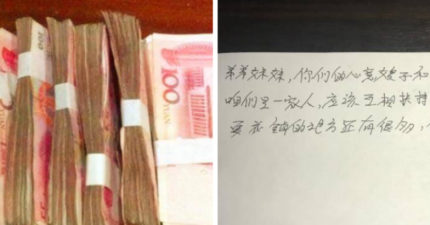 100
弟弟妹妹，你们的心意嫂子和
咱们是一家人，应该互相扶持
要花钱的地方还有很多，